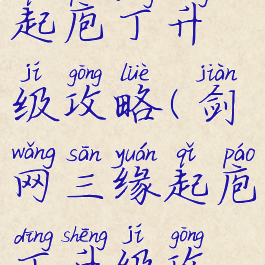 起庖丁升
jí gōng lüè jiàn
级攻略(剑
wǎng sān yuán qǐ páo
网三缘起庖
dīng shēng jí gōng
丁升级攻